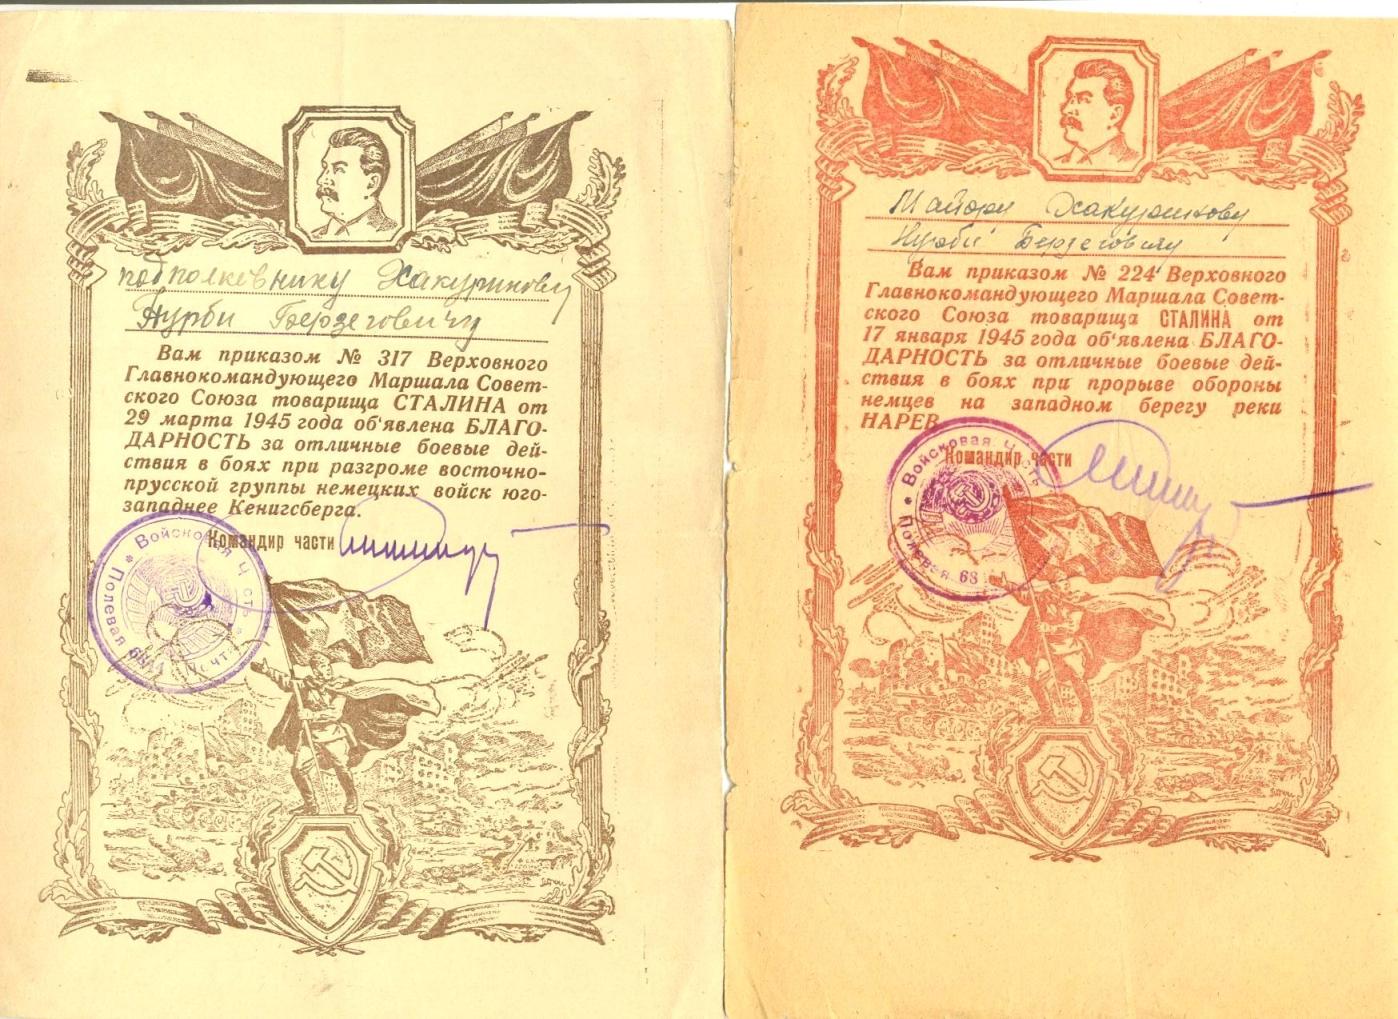 подполковнику Хакуринову
Нурби Берзеговичу
Вам приказом № 317 Верховного
Главнокомандующего Маршала Совет-
ского Союза товарища СТАЛИНА от
29 марта 1945 года об'явлена БЛАГО-
ДАРНОСТЬ за отличные боевые дей-
ствия в боях при разгроме восточно-
прусской группы немецких войск юго-
западнее Кенигсберга.
Командир части
Войсковая Часть
Полевая Почта
Майору Хакуринову
Нурби Берзеговичу
Вам приказом № 224 Верховного
Главнокомандующего Маршала Совет-
ского Союза товарища СТАЛИНА от
17 января 1945 года об'явлена БЛАГО-
ДАРНОСТЬ за отличные боевые дей-
ствия в боях при прорыве обороны
немцев на западном берегу реки
НАРЕВ.
Командир части
Войсковая Часть
Полевая 68